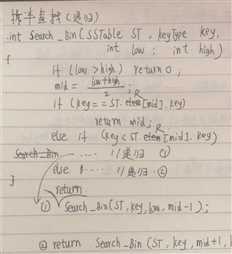 折半查找(递归)
int Search_Bin(SSTable ST, keyType key,
int low, int high)
{
if (low > high) return 0;
mid = low+high / 2;
if (key == ST.R[mid].key)
return mid;
else if (key < ST.R[mid].key)
…… //递归 ①
else …… //递归 ②
}
return
① Search_Bin(ST, key, low, mid-1);
② return Search_Bin(ST, key, mid+1, h